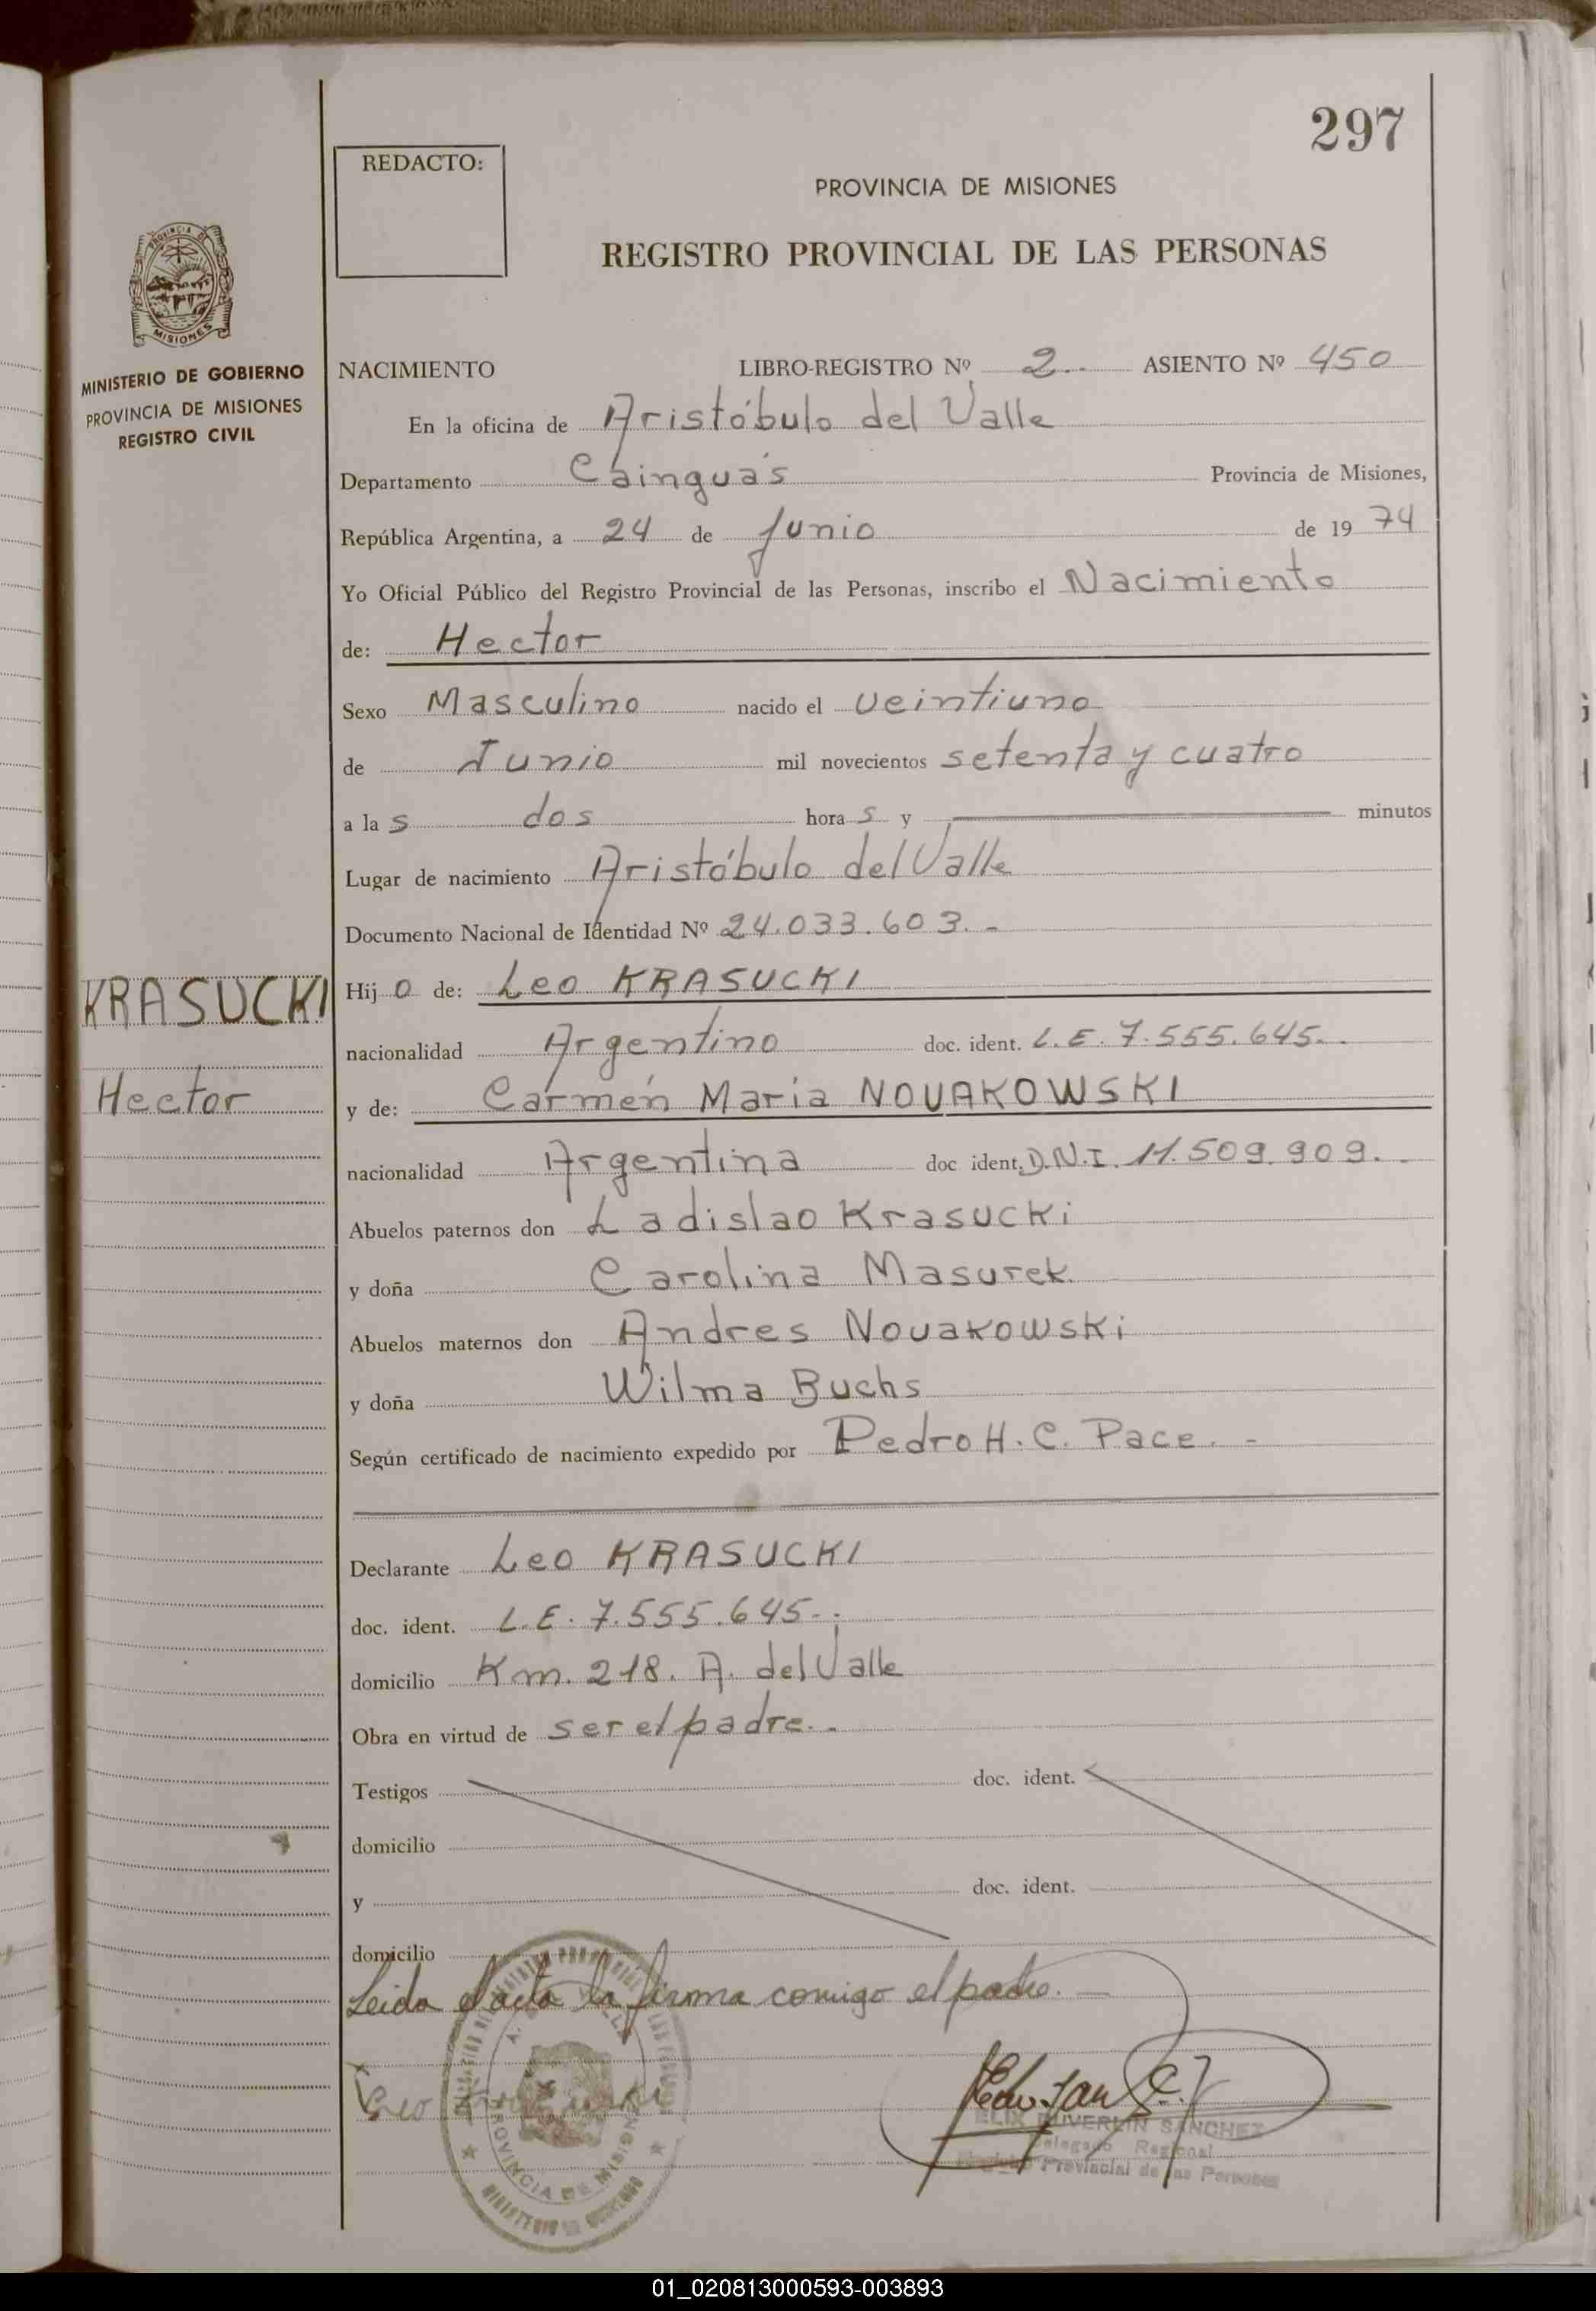 297
REDACTO:
PROVINCIA DE MISIONES
REGISTRO PROVINCIAL DE LAS PERSONAS
PROVINCIA DE
MISIONES
MINISTERIO DE GOBIERNO
PROVINCIA DE MISIONES
REGISTRO CIVIL
NACIMIENTO LIBRO-REGISTRO Nº 2 ASIENTO Nº 450
En la oficina de Aristóbulo del Valle
Departamento Cainguás Provincia de Misiones,
República Argentina, a 24 de Junio de 1974
Yo Oficial Público del Registro Provincial de las Personas, inscribo el Nacimiento
de: Hector
Sexo Masculino nacido el veintiuno
de Junio mil novecientos setenta y cuatro
a las dos horas y minutos
Lugar de nacimiento Aristóbulo del Valle
Documento Nacional de Identidad Nº 24.033.603.-
KRASUCKI
Hijo de: Leo KRASUCKI
nacionalidad Argentino doc. ident. L.E. 7.555.645.
Hector
y de: Carmen Maria NOVAKOWSKI
nacionalidad Argentina doc ident. D.N.I. 11.509.909.
Abuelos paternos don Ladislao Krasucki
y doña Carolina Masurek
Abuelos maternos don Andres Novakowski
y doña Wilma Buchs
Según certificado de nacimiento expedido por Pedro H. C. Pace.-
Declarante Leo KRASUCKI
doc. ident. L.E. 7.555.645.
domicilio Km. 218. A. del Valle
Obra en virtud de ser el padre.
Testigos doc. ident.
domicilio
y doc. ident.
domicilio
Leida el acta la firma comigo el padre.
Leo
PROVINCIA DE MISIONES
SANCHEZ
Delegado Regional
Provincial de las Personas
01_020813000593-003893